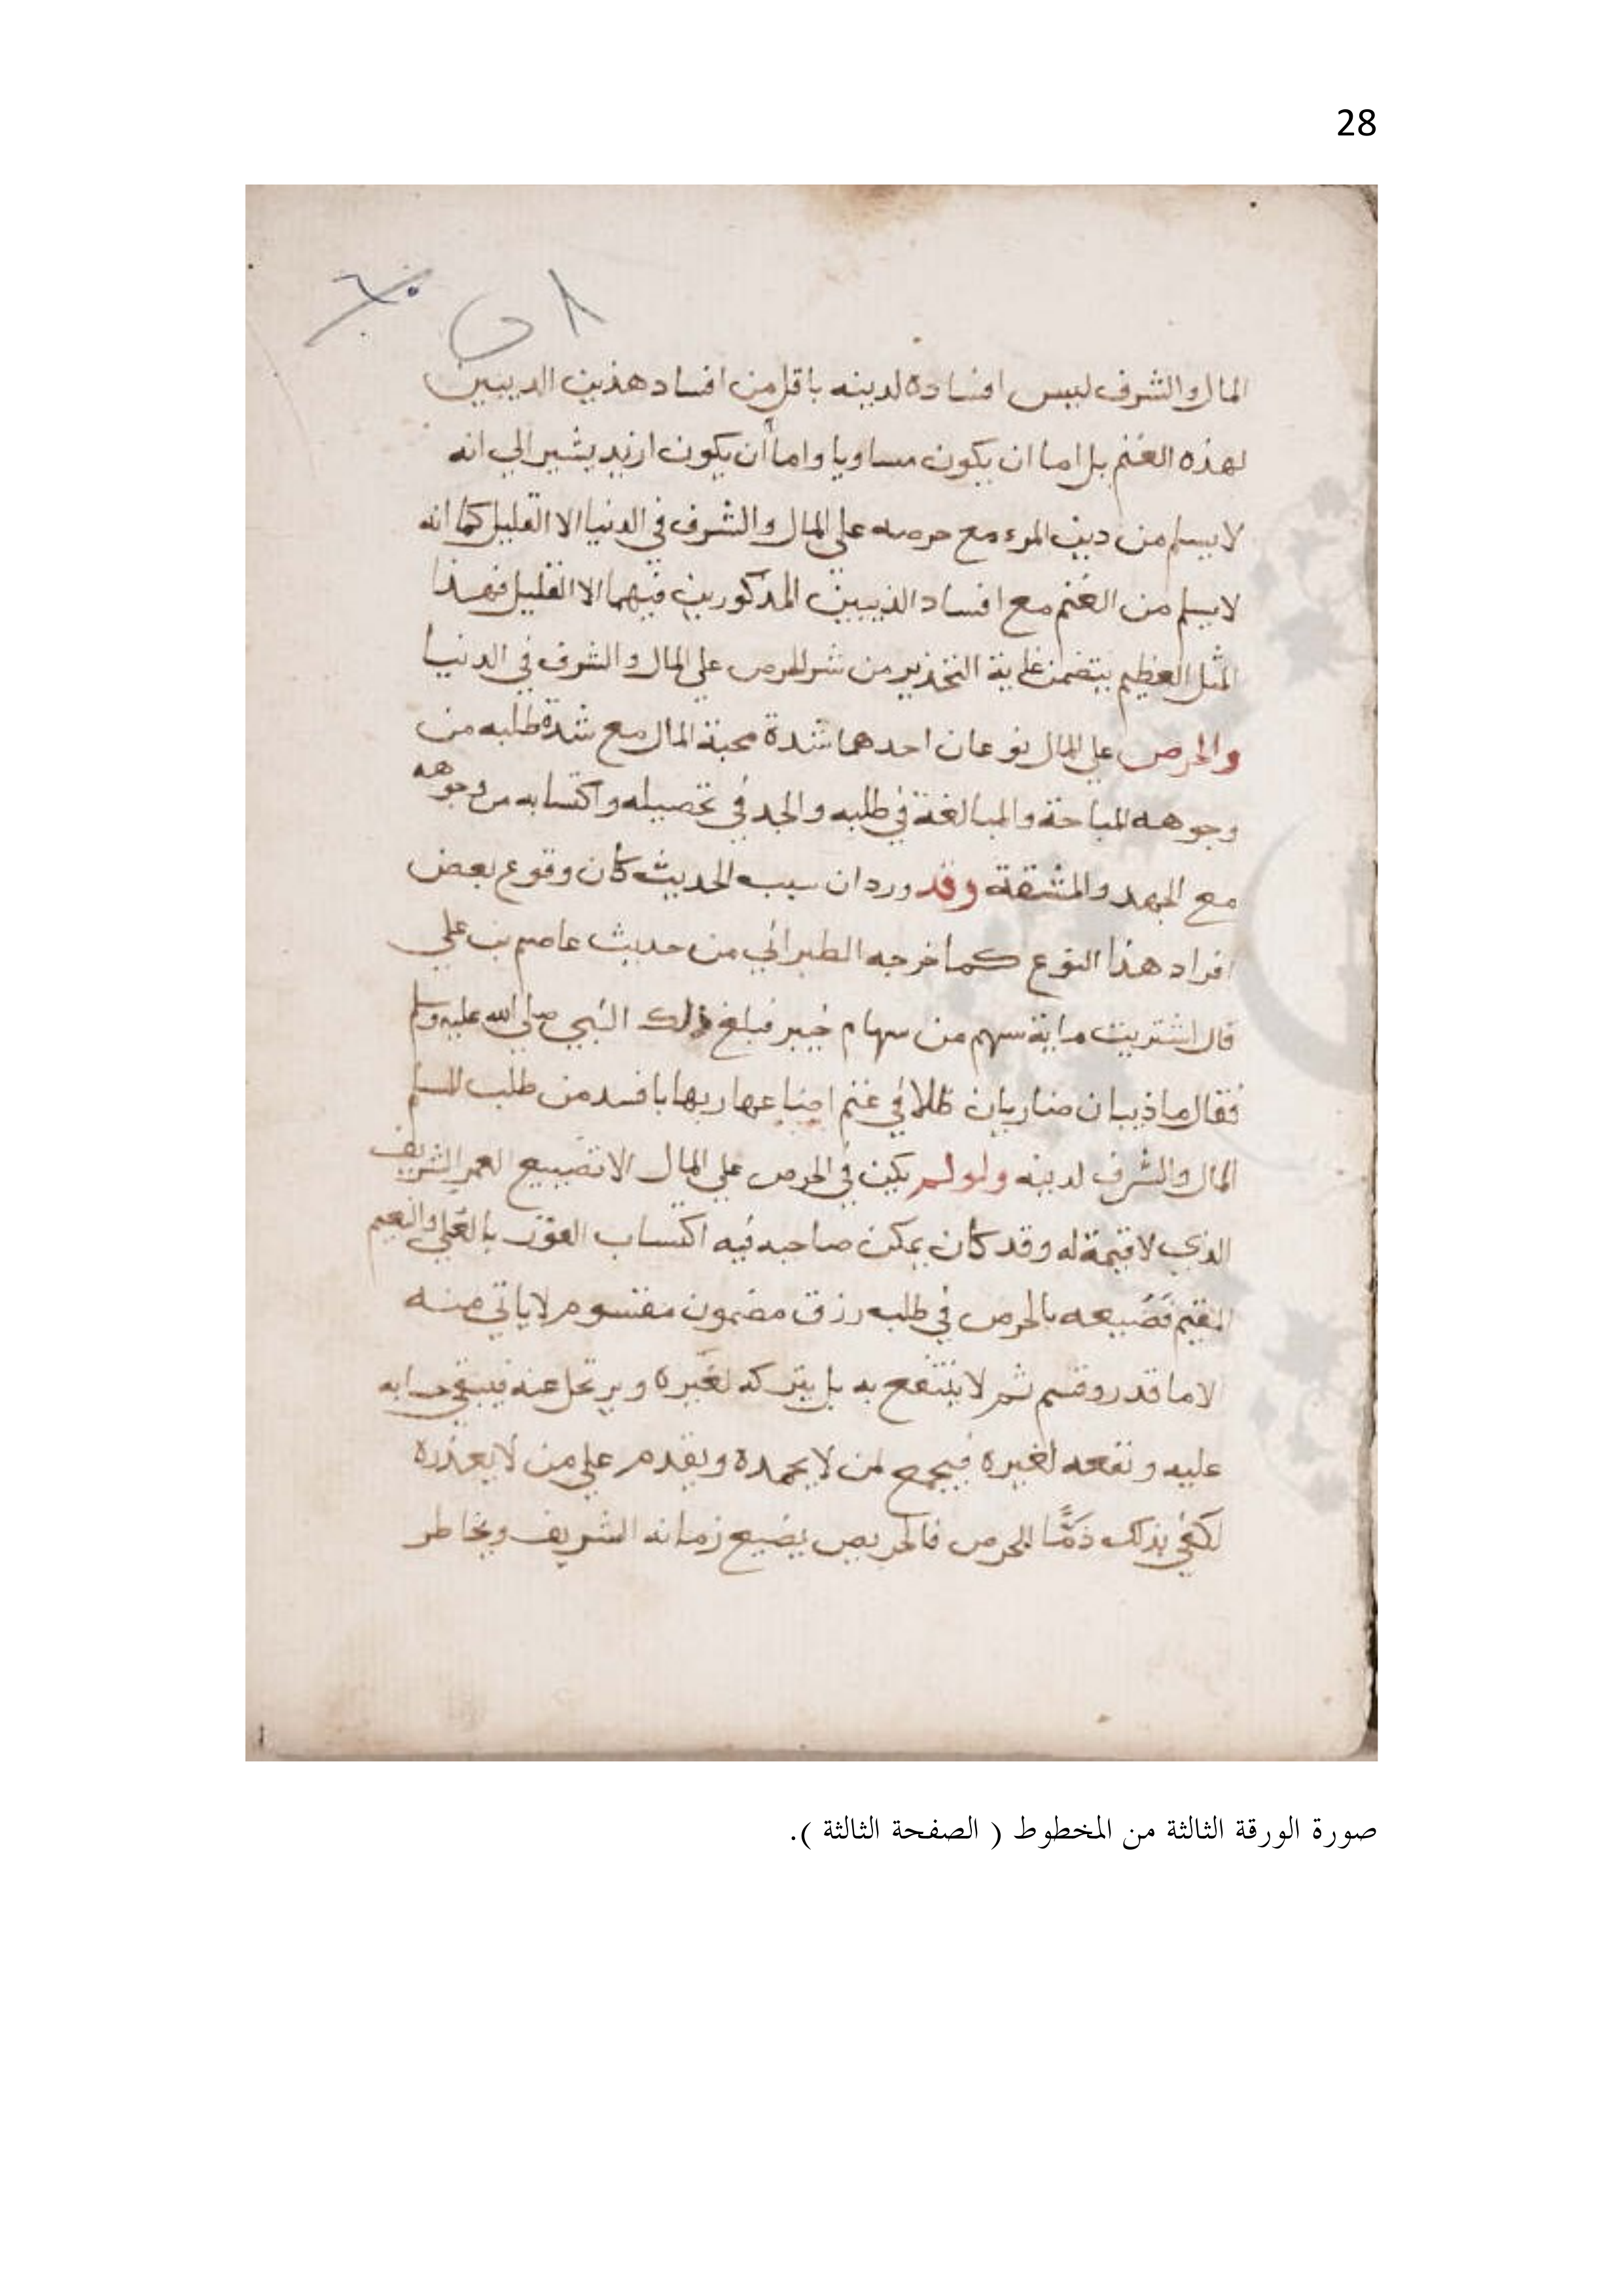 28
المال والشرف ليس افساده لدينه باقل من افساد هذين الديبين
لهذه الغنم بل اما ان يكون مساويا واما أن يكون ازيد يشير الي انه
لا يسلم من دين المرء مع حرصه علي المال والشرف في الدنيا الا القليل كما انه
لا يسلم من الغنم مع افساد الذيبين المذكورين فيهما الا القليل فهذا
المثل العظيم يتضمن غاية التحذير من شر الحرص علي المال والشرف في الدنيا
والحرص علي المال نوعان احدهما شدة محبة المال مع شدة طلبه من
وجوهه المباحة والمبالغة في طلبه والجد في تحصيله واكتسابه من وجوهه
مع الجهد والمشقة وقد ورد ان سبب الحديث كان وقوع بعض
افراد هذا النوع كما خرجه الطبراني من حديث عاصم بن علي
قال اشتريت ماية سهم من سهام خيبر فبلغ ذلك النبي صلي الله عليه وسلم
فقال ما ذيبان ضاريان ظلا في غنم اضاعها ربها بافسد من طلب المسلم
المال والشرف لدينه ولو لم يكن في الحرص علي المال الا تضييع العمر الشريف
الذي لا قيمة له وقد كان يمكن صاحبه فيه اكتساب الفوز بالعلي والنعيم
المقيم فضيعه بالحرص في طلبه رزق مضمون مقسوم لا ياتي منه
الا ما قدر وقسم ثم لا ينتفع به بل يتركه لغيره ويرتحل عنه فيبقي حسابه
عليه ونفعه لغيره فيجمع لمن لا يحمده ويقدم علي من لا يعذره
لكفي بذلك ذمًّا للحرص فالحريص يضيع زمانه الشريف ويخاطر
صورة الورقة الثالثة من المخطوط ( الصفحة الثالثة ).